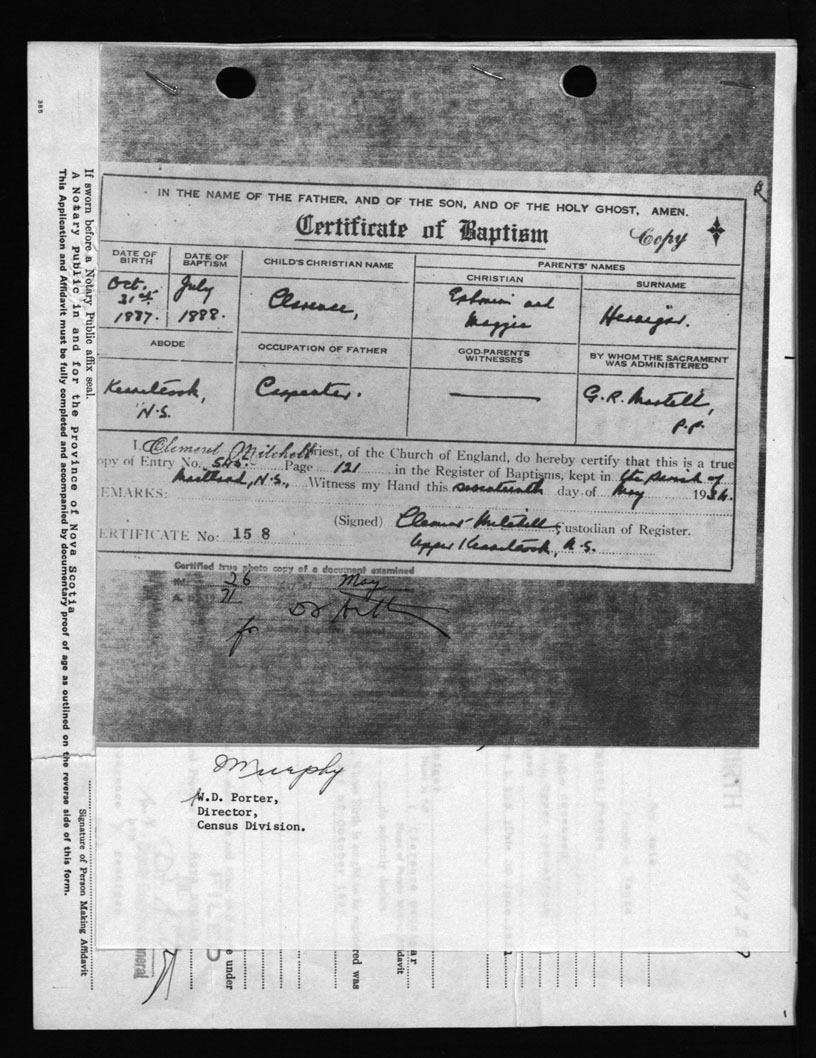 385
If sworn before a Notary Public affix seal.
A Notary Public in and for the Province of Nova Scotia
This Application and Affidavit must be fully completed and accompanied by documentary proof of age as outlined on the reverse side of this form.
Signature of Person Making Affidavit
IN THE NAME OF THE FATHER, AND OF THE SON, AND OF THE HOLY GHOST, AMEN.
Certificate of Baptism
Copy
DATE OF BIRTH
DATE OF BAPTISM
CHILD'S CHRISTIAN NAME
PARENTS' NAMES
CHRISTIAN
SURNAME
Oct. 31st 1887.
July 1888.
Clarence,
Ephraim and Maggie
ABODE
OCCUPATION OF FATHER
GOD-PARENTS WITNESSES
BY WHOM THE SACRAMENT WAS ADMINISTERED
N.S.
Carpenter.
G. R. Martell,
P.P.
I, Clement Mitchell Priest, of the Church of England, do hereby certify that this is a true
opy of Entry No. 545. Page 121 in the Register of Baptisms, kept in the parish of
Maitland, N.S., Witness my Hand this seventeenth day of May 193
EMARKS:
(Signed) Clement Mitchell, Custodian of Register.
ERTIFICATE No: 15 8
Upper Kennetcook, N.S.
Certified true photo copy of a document examined
26 day of May
A. D. 19 71
for
Murphy
W.D. Porter,
Director,
Census Division.
e under
red was
ar